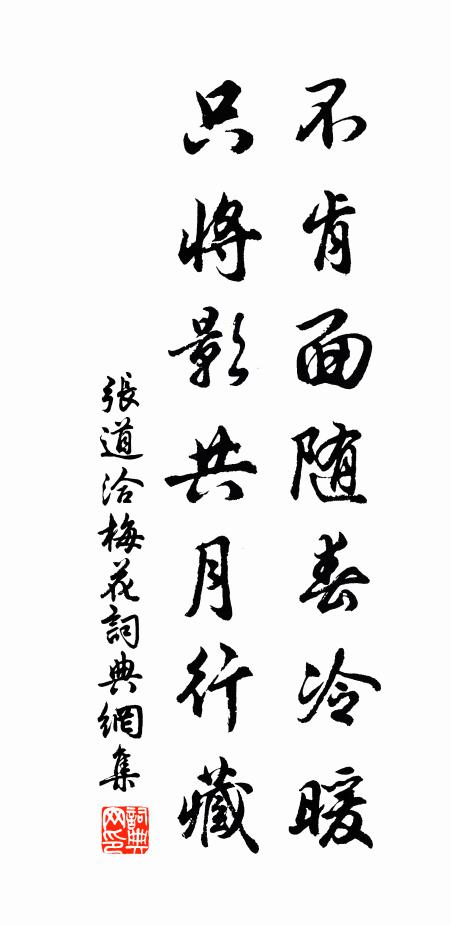 不肯面随春冷暖
只将影共月行藏
張道洽梅花詞典網集
詞典网印